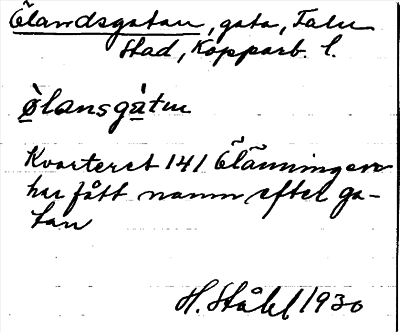 Ölandsgatan, gata, Falu
stad, Kopparb. l.
ö̀lansgàtu
Kvarteret 141 Ölänningen
har fått namn efter ga-
tan
H. Ståhl 1930